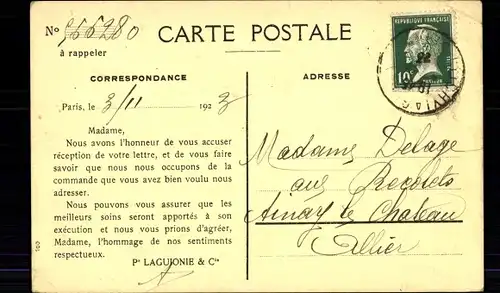 No 566280
CARTE POSTALE
à rappeler
CORRESPONDANCE
ADRESSE
REPUBLIQUE FRANÇAISE
10c
Paris, le 3/11 1923
Madame,
Nous avons l'honneur de vous accuser
réception de votre lettre, et de vous faire
savoir que nous nous occupons de la
commande que vous avez bien voulu nous
adresser.
Nous pouvons vous assurer que les
meilleurs soins seront apportés à son
exécution et nous vous prions d'agréer,
Madame, l'hommage de nos sentiments
respectueux.
Pr LAGUIONIE & Cie
100
Madame Delage
aux Recolets
Ainay le Chateau
Allier